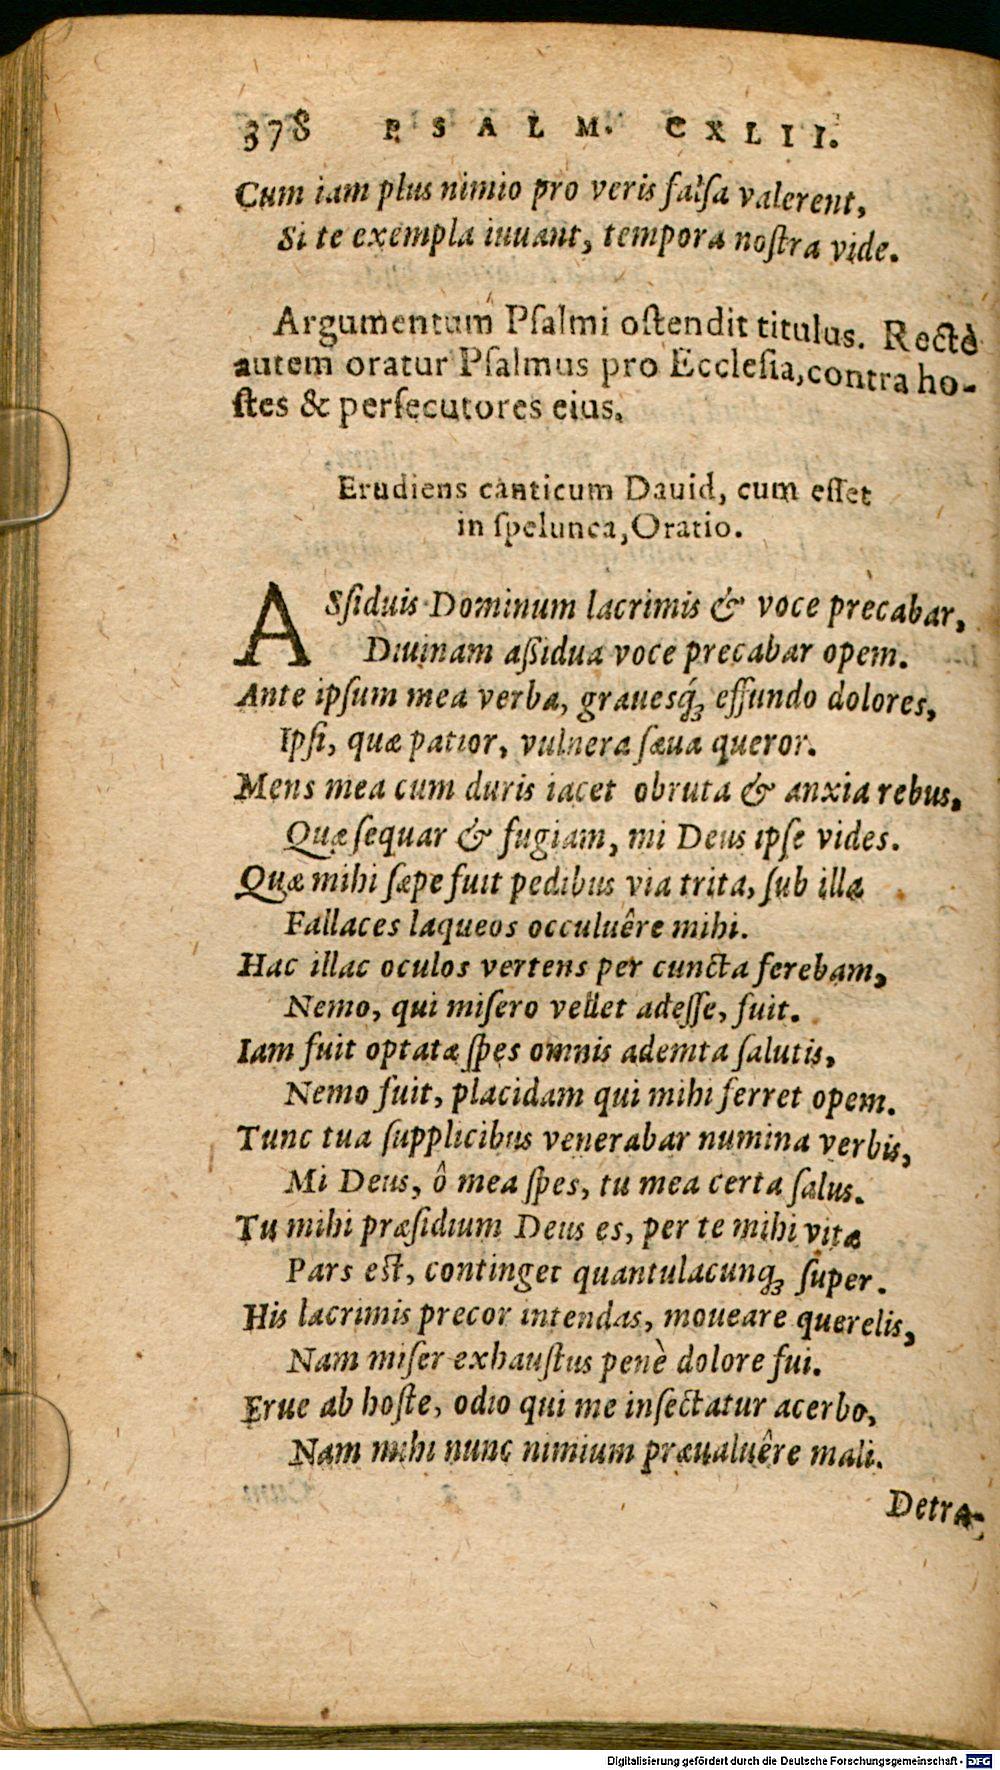 378 PSALM. CXLII.
Cum iam plus nimio pro veris falſa valerent,
Si te exempla iuuant, tempora noſtra vide.
Argumentum Pſalmi oſtendit titulus. Rectè
autem oratur Pſalmus pro Eccleſia, contra ho-
ſtes & perſecutores eius.
Erudiens canticum Dauid, cum eſſet
in ſpelunca, Oratio.
ASſiduis Dominum lacrimis & voce precabar,
Diuinam aßidua voce precabar opem.
Ante ipſum mea verba, grauesq́ꝫ effundo dolores,
Ipſi, quæ patior, vulnera ſæua queror.
Mens mea cum duris iacet obruta & anxia rebus,
Quæ ſequar & fugiam, mi Deus ipſe vides.
Quæ mihi ſæpe fuit pedibus via trita, ſub illa
Fallaces laqueos occuluêre mihi.
Hac illac oculos vertens per cuncta ferebam,
Nemo, qui miſero vellet adeſſe, fuit.
Iam fuit optatæ ſpes omnis ademta ſalutis,
Nemo fuit, placidam qui mihi ferret opem.
Tunc tua ſupplicibus venerabar numina verbis,
Mi Deus, ô mea ſpes, tu mea certa ſalus.
Tu mihi præſidium Deus es, per te mihi vitæ
Pars eſt, continget quantulacunqꝫ ſuper.
His lacrimis precor intendas, moueare querelis,
Nam miſer exhauſtus penè dolore fui.
Erue ab hoſte, odio qui me inſectatur acerbo,
Nam mihi nunc nimium præualuêre mali.
Detra-
Digitalisierung gefördert durch die Deutsche Forschungsgemeinschaft - DFG